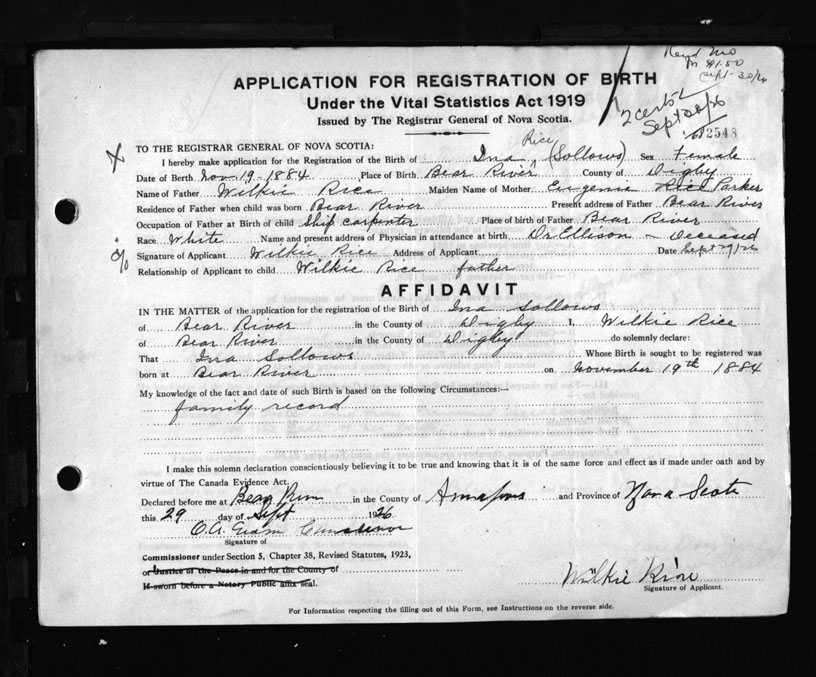 Recd Mo
$1.50
Sept 30/26
APPLICATION FOR REGISTRATION OF BIRTH
Under the Vital Statistics Act 1919
Issued by The Registrar General of Nova Scotia.
2 certs
Sept 30/26
2548
TO THE REGISTRAR GENERAL OF NOVA SCOTIA:
Rice
I hereby make application for the Registration of the Birth of Ina (Sollows) Sex Female
Date of Berth Nov. 19-1884 Place of Birth Bear River County of Digby
Name of Father Wilkie Rice Maiden Name of Mother Eugenie Rice Parker
Residence of Father when child was born Bear River Present address of Father Bear River
Occupation of Father at Birth of child Ship carpenter Place of birth of Father Bear River
Race White Name and present address of Physician in attendance at birth Dr Ellison - Deceased
Signature of Applicant Wilkie Rice Address of Applicant Date Sept 29/26
Relationship of Applicant to child Wilkie Rice father
AFFIDAVIT
IN THE MATTER of the application for the registration of the Birth of Ina Sollows
of Bear River in the County of Digby I, Wilkie Rice
of Bear River in the County of Digby do solemnly declare:
That Ina Sollows Whose Birth is sought to be registered was
born at Bear River on November 19th 1884
My knowledge of the fact and date of such Birth is based on the following Circumstances:--
family record
I make this solemn declaration conscientiously believing it to be true and knowing that it is of the same force and effect as if made under oath and by
virtue of The Canada Evidence Act.
Declared before me at Bear River in the County of Annapolis and Province of Nova Scotia
this 29 day of Sept 1926
Signature of
Commissioner under Section 5, Chapter 38, Revised Statutes, 1923,
or Justice of the Peace in and for the County of
If sworn before a Notary Public affix seal.
Wilkie Rice
Signature of Applicant.
For Information respecting the filling out of this Form, see Instructions on the reverse side.